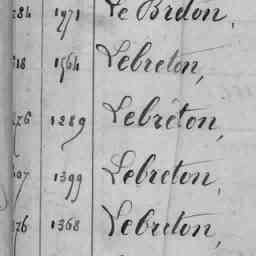 284 1971 Le Breton,
318 1564 Lebreton,
276 1289 Lebreton,
1399 Lebreton,
276 1368 Lebreton,